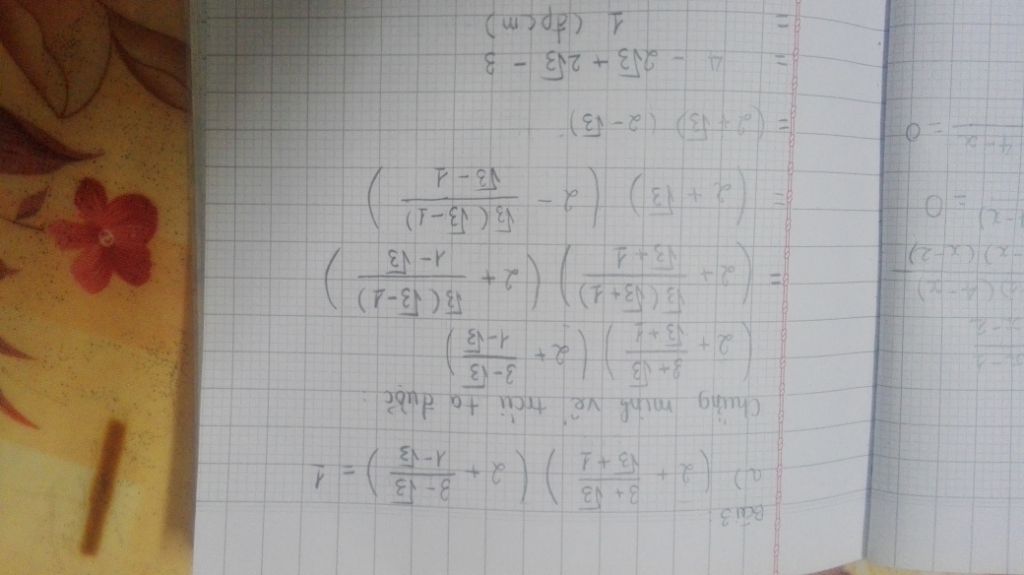 Bài 3:
a) (2 + (3+√3)/(√3+1)) (2 + (3-√3)/(1-√3)) = 1
Chứng minh vế trái ta được:
(2 + (3+√3)/(√3+1)) (2 + (3-√3)/(1-√3))
= (2 + √3(√3+1)/(√3+1)) (2 + √3(√3-1)/(1-√3))
= (2 + √3) (2 - √3(√3-1)/(√3-1))
= (2+√3) (2-√3)
= 4 - 2√3 + 2√3 - 3
= 1 (đpcm)
= 0
4-x
= 0